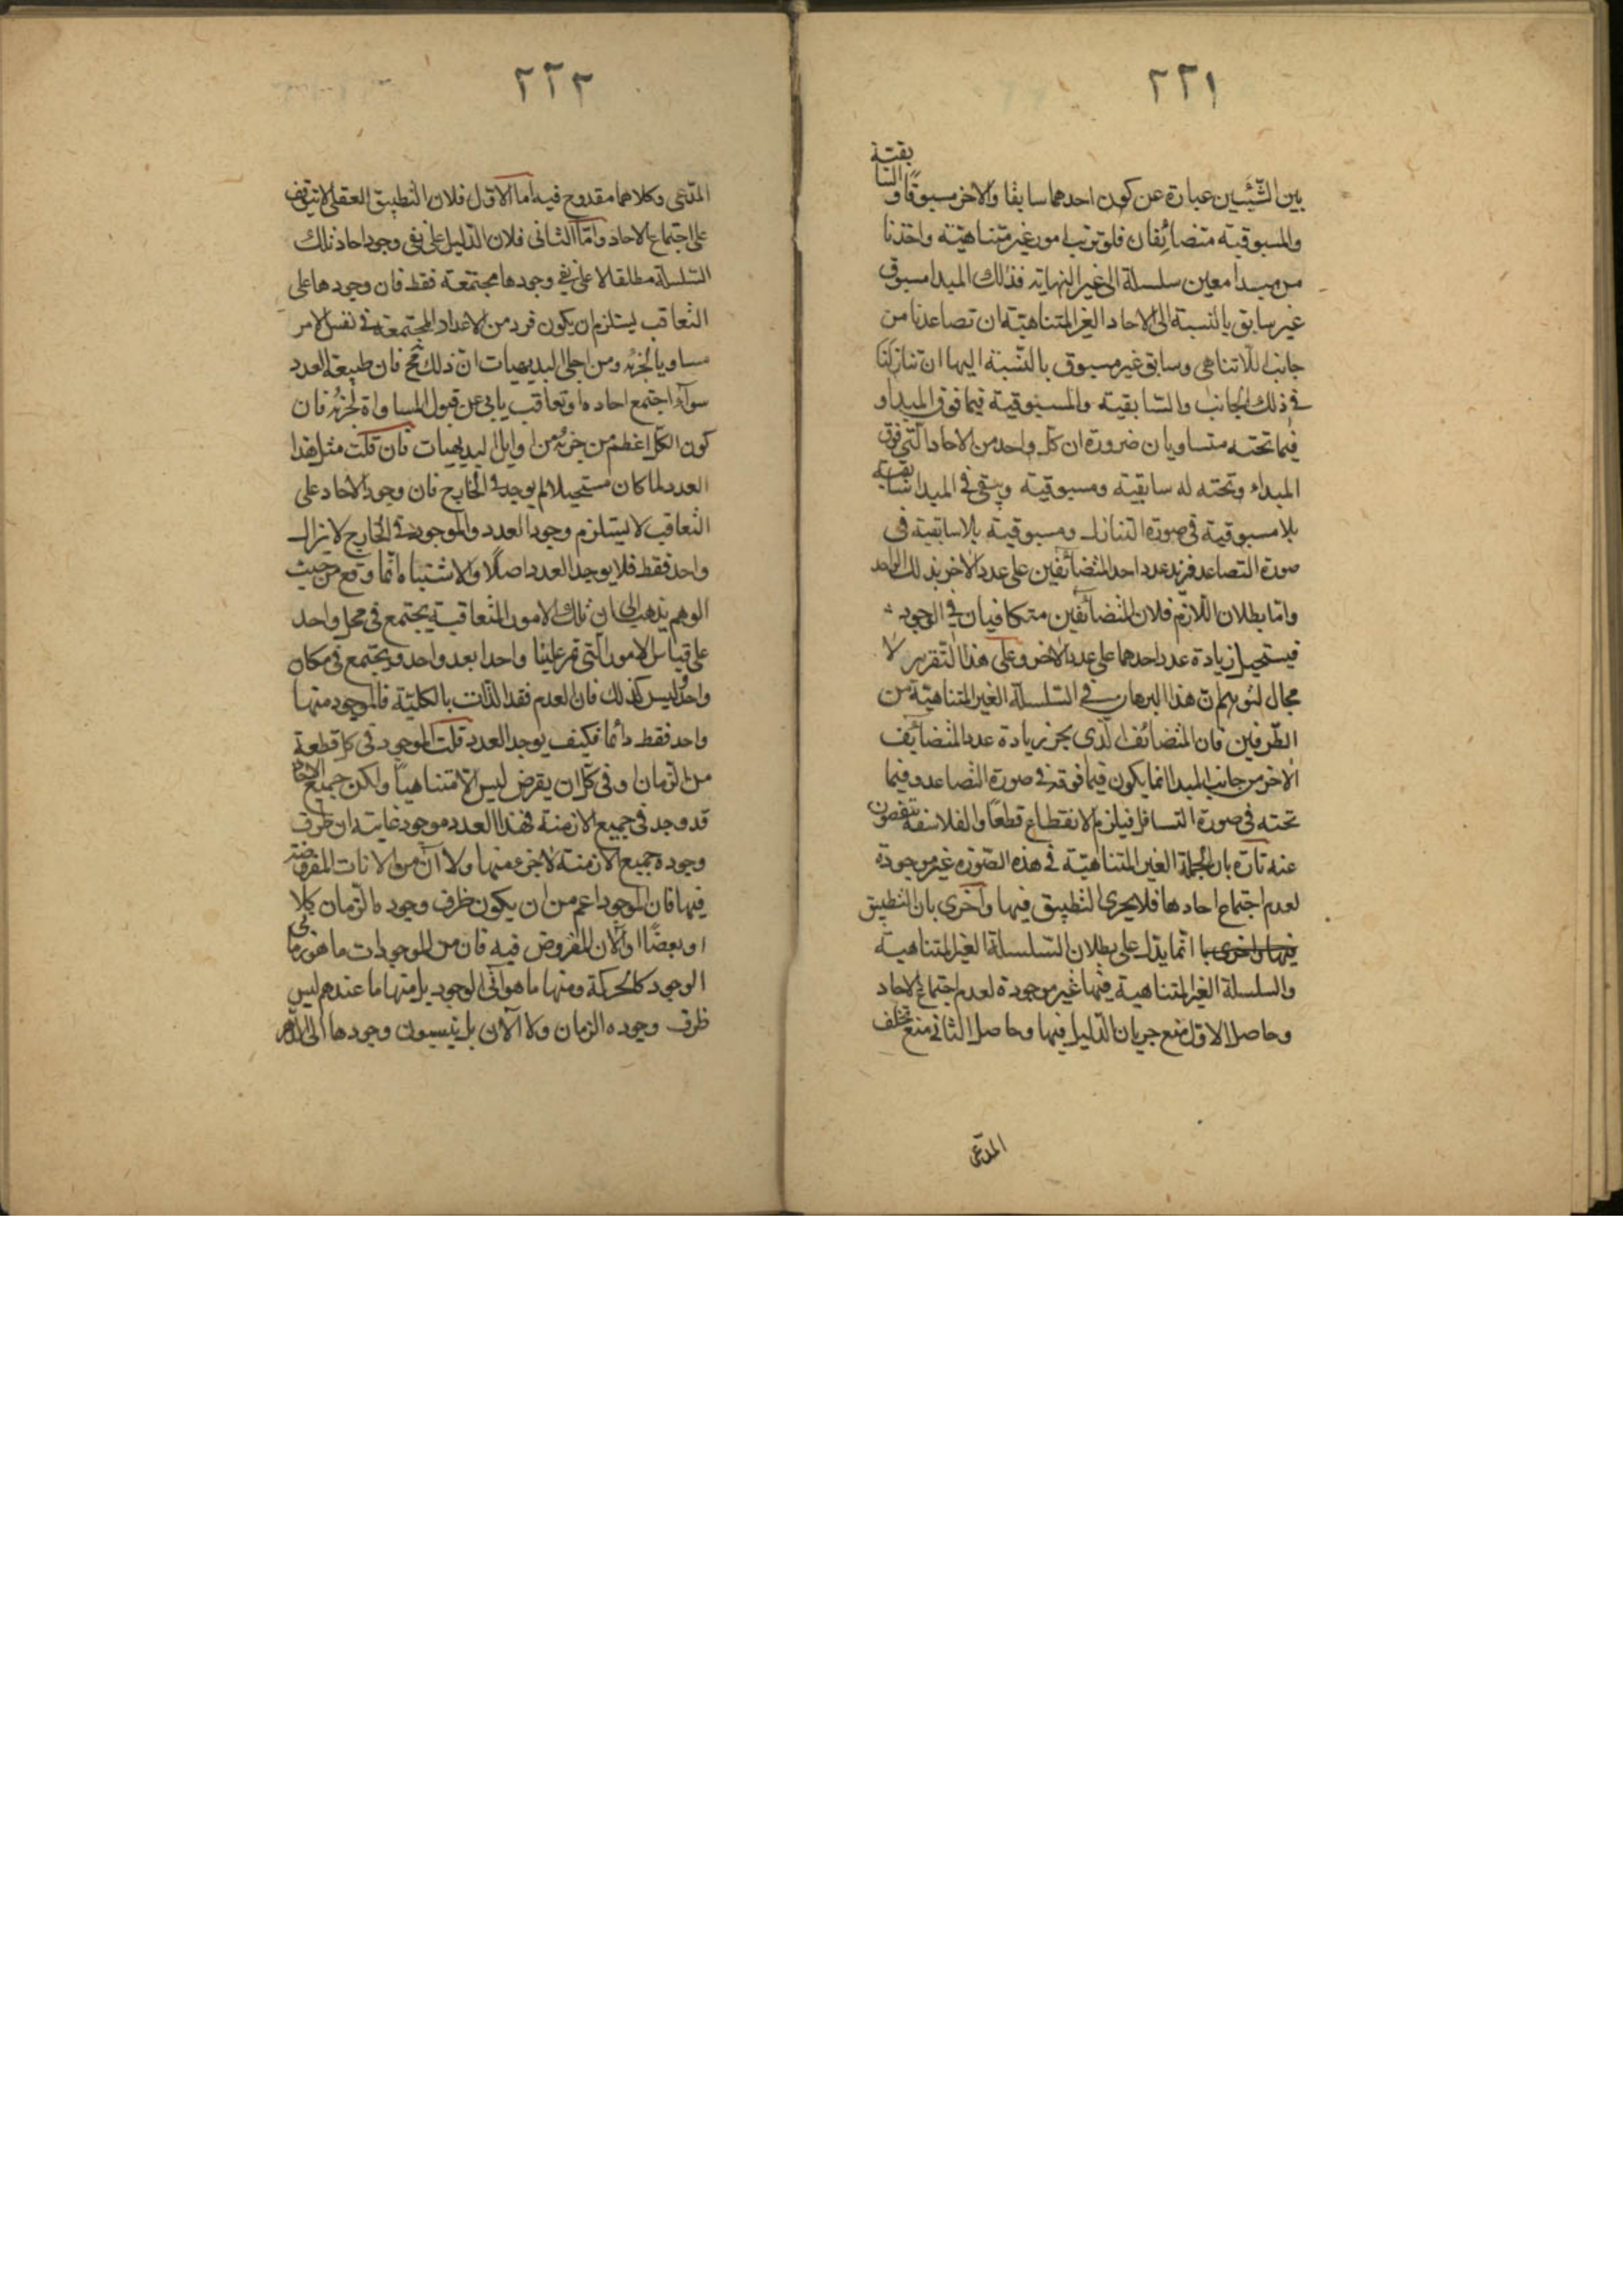 ٢٢١
بين الشيئين عبارة عن كون احدهما سابقا والاخر مسبوقا والسابقية
والمسبوقية متضائفان فلو ترتب امور غير متناهية واخذنا
من مبدا معين سلسلة الى غير النهاية فذلك المبدا مسبوق
غير سابق بالنسبة الى الاحاد الغير المتناهية ان تصاعدنا من
جانب اللاتناهى وسابق غير مسبوق بالنسبة اليها ان تنازلنا
فى ذلك الجانب والسابقية والمسبوقية فيما فوق المبداء و
فيما تحته متساويان ضرورة ان كل واحد من الاحاد التى فوق
المبداء وتحته له سابقية ومسبوقية ويبقى فى المبدا سابقية
بلا مسبوقية فى صورة التنازل ومسبوقية بلا سابقية فى
صورة التصاعد فزيد عدد احد المتضائفين على عدد الاخر بذلك الواحد
واما بطلان اللازم فلان المتضائفين متكافيان فى الوجود
فيستحيل زيادة عدد احدهما على عدد الاخر وعلى هذا التقرير لا
مجال لتوهم ان هذا البرهان فى السلسلة الغير المتناهية من
الطرفين فان المتضائف الذى يجز زيادة عدد المتضائف
الاخر من جانب المبدا انما يكون فيما فوقه فى صورة التصاعد وفيما
تحته فى صورة التسافل فيلزم الانقطاع قطعا والفلاسفة يتفصون
عنه تارة بان الجملة الغير المتناهية فى هذه الصورة غير موجودة
لعدم اجتماع احادها فلا يجرى التطبيق فيها واخرى بان التطبيق
فيها واخرى با انما يدل على بطلان السلسلة الغير المتناهية
والسلسلة الغير المتناهية فيها غير موجودة لعدم اجتماع الاحاد
وحاصل الاول منع جريان الدليل فيها وحاصل الثانى منع تخلف
المدعى
٢٢٢
المدعى وكلاهما مقدوح فيه اما الاول فلان التطبيق العقلى لا يتوقف
على اجتماع الاحاد واما الثانى فلان الدليل على نفى وجود احاد تلك
السلسلة مطلقا لا على نفى وجودها مجتمعة فقط فان وجودها على
التعاقب يستلزم ان يكون فرد من الاعداد المجتمعة فى نفس الامر
مساويا لجزئه ومن اجلى البديهيات ان ذلك مح فان طبيعة العدد
سوآء اجتمع احاده او تعاقب يابى عن قبول المساواة لجزئه فان
كون الكل اعظم من جزئه من اوايل البديهيات فان قلت مثل هذا
العدد لما كان مستحيلا لم يوجد فى الخارج فان وجود الاحاد على
التعاقب لا يستلزم وجود العدد والموجود فى الخارج لا يزال
واحد فقط فلا يوجد العدد اصلا والاشتباه انما وقع من حيث
الوهم يذهب الى ان تلك الامور المتعاقبة يجتمع فى محل واحد
على قياس الامور التى تمر علينا واحدا بعد واحد ويجتمع فى مكان
واحد وليس كذلك فان العدم فقد الذات بالكلية فالموجود منها
واحد فقط دائما فكيف يوجد العدد قلت الموجود فى كل قطعة
من الزمان او فى كل ان يفرض ليس الا متناهيا ولكن جميع الاحاد
قد وجد فى جميع الازمنة فهذا العدد موجود غايته ان ظرف
وجوده جميع الازمنة لا جزء منها ولا آن من الانات المفروضة
فيها فان الموجود اعم من ان يكون ظرف وجوده الزمان كلا
او بعضا او الآن المفروض فيه فان من الموجودات ما هو زمانى
الوجود كالحركة ومنها ما هو آنى الوجود بل منها ما عندهم ليس
ظرف وجوده الزمان ولا الآن بل ينسبون وجودها الى الدهر